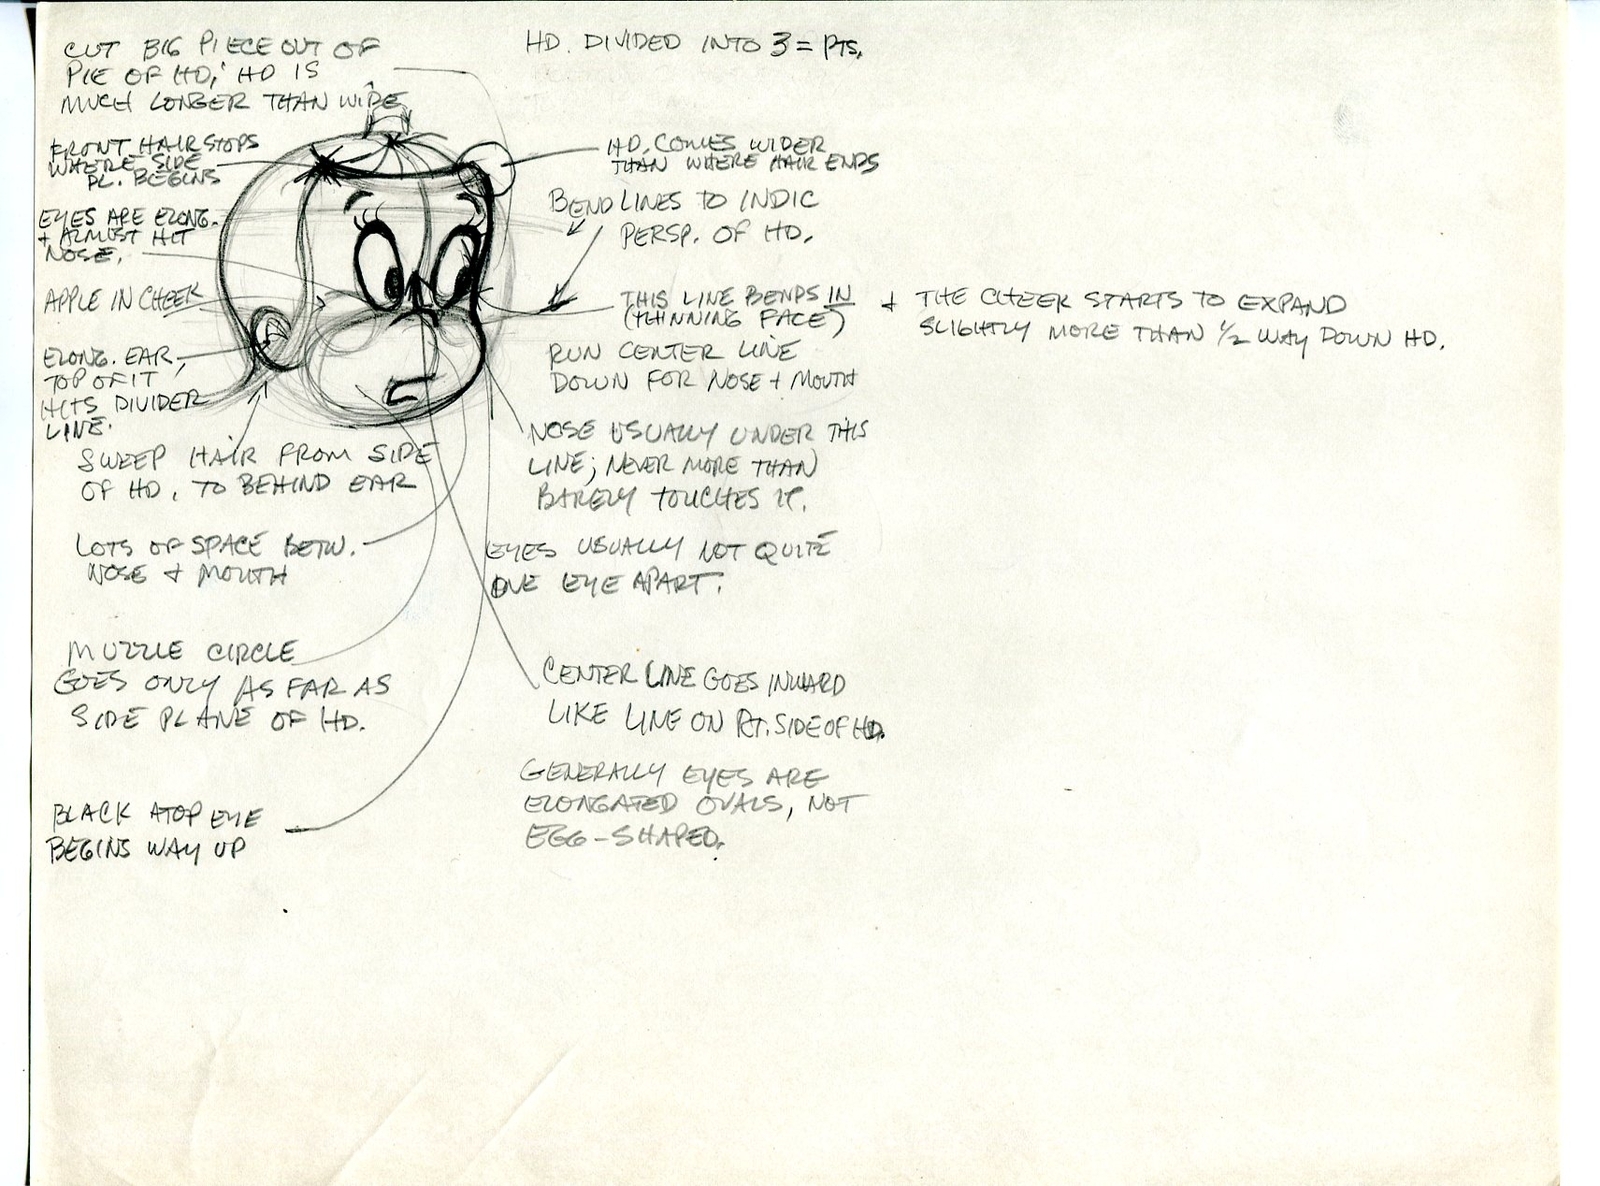 CUT BIG PIECE OUT OF
PIE OF HD; HD IS
MUCH LONGER THAN WIDE
FRONT HAIR STOPS
WHERE SIDE
PL. BEGINS
EYES ARE ELONG.
+ ALMOST HIT
NOSE.
APPLE IN CHEEK
ELONG. EAR,
TOP OF IT
HITS DIVIDER
LINE.
SWEEP HAIR FROM SIDE
OF HD. TO BEHIND EAR
LOTS OF SPACE BETW.
NOSE + MOUTH
MUZZLE CIRCLE
GOES ONLY AS FAR AS
SIDE PLANE OF HD.
BLACK ATOP EYE
BEGINS WAY UP
HD. DIVIDED INTO 3 = PTS.
HD. COMES WIDER
THAN WHERE HAIR ENDS
BEND LINES TO INDIC
PERSP. OF HD.
THIS LINE BENDS IN + THE CHEEK STARTS TO EXPAND
(THINNING FACE) SLIGHTLY MORE THAN 1/2 WAY DOWN HD.
RUN CENTER LINE
DOWN FOR NOSE + MOUTH
NOSE USUALLY UNDER THIS
LINE; NEVER MORE THAN
BARELY TOUCHES IT.
EYES USUALLY NOT QUITE
ONE EYE APART.
CENTER LINE GOES INWARD
LIKE LINE ON RT. SIDE OF HD.
GENERALLY EYES ARE
ELONGATED OVALS, NOT
EGG-SHAPED.